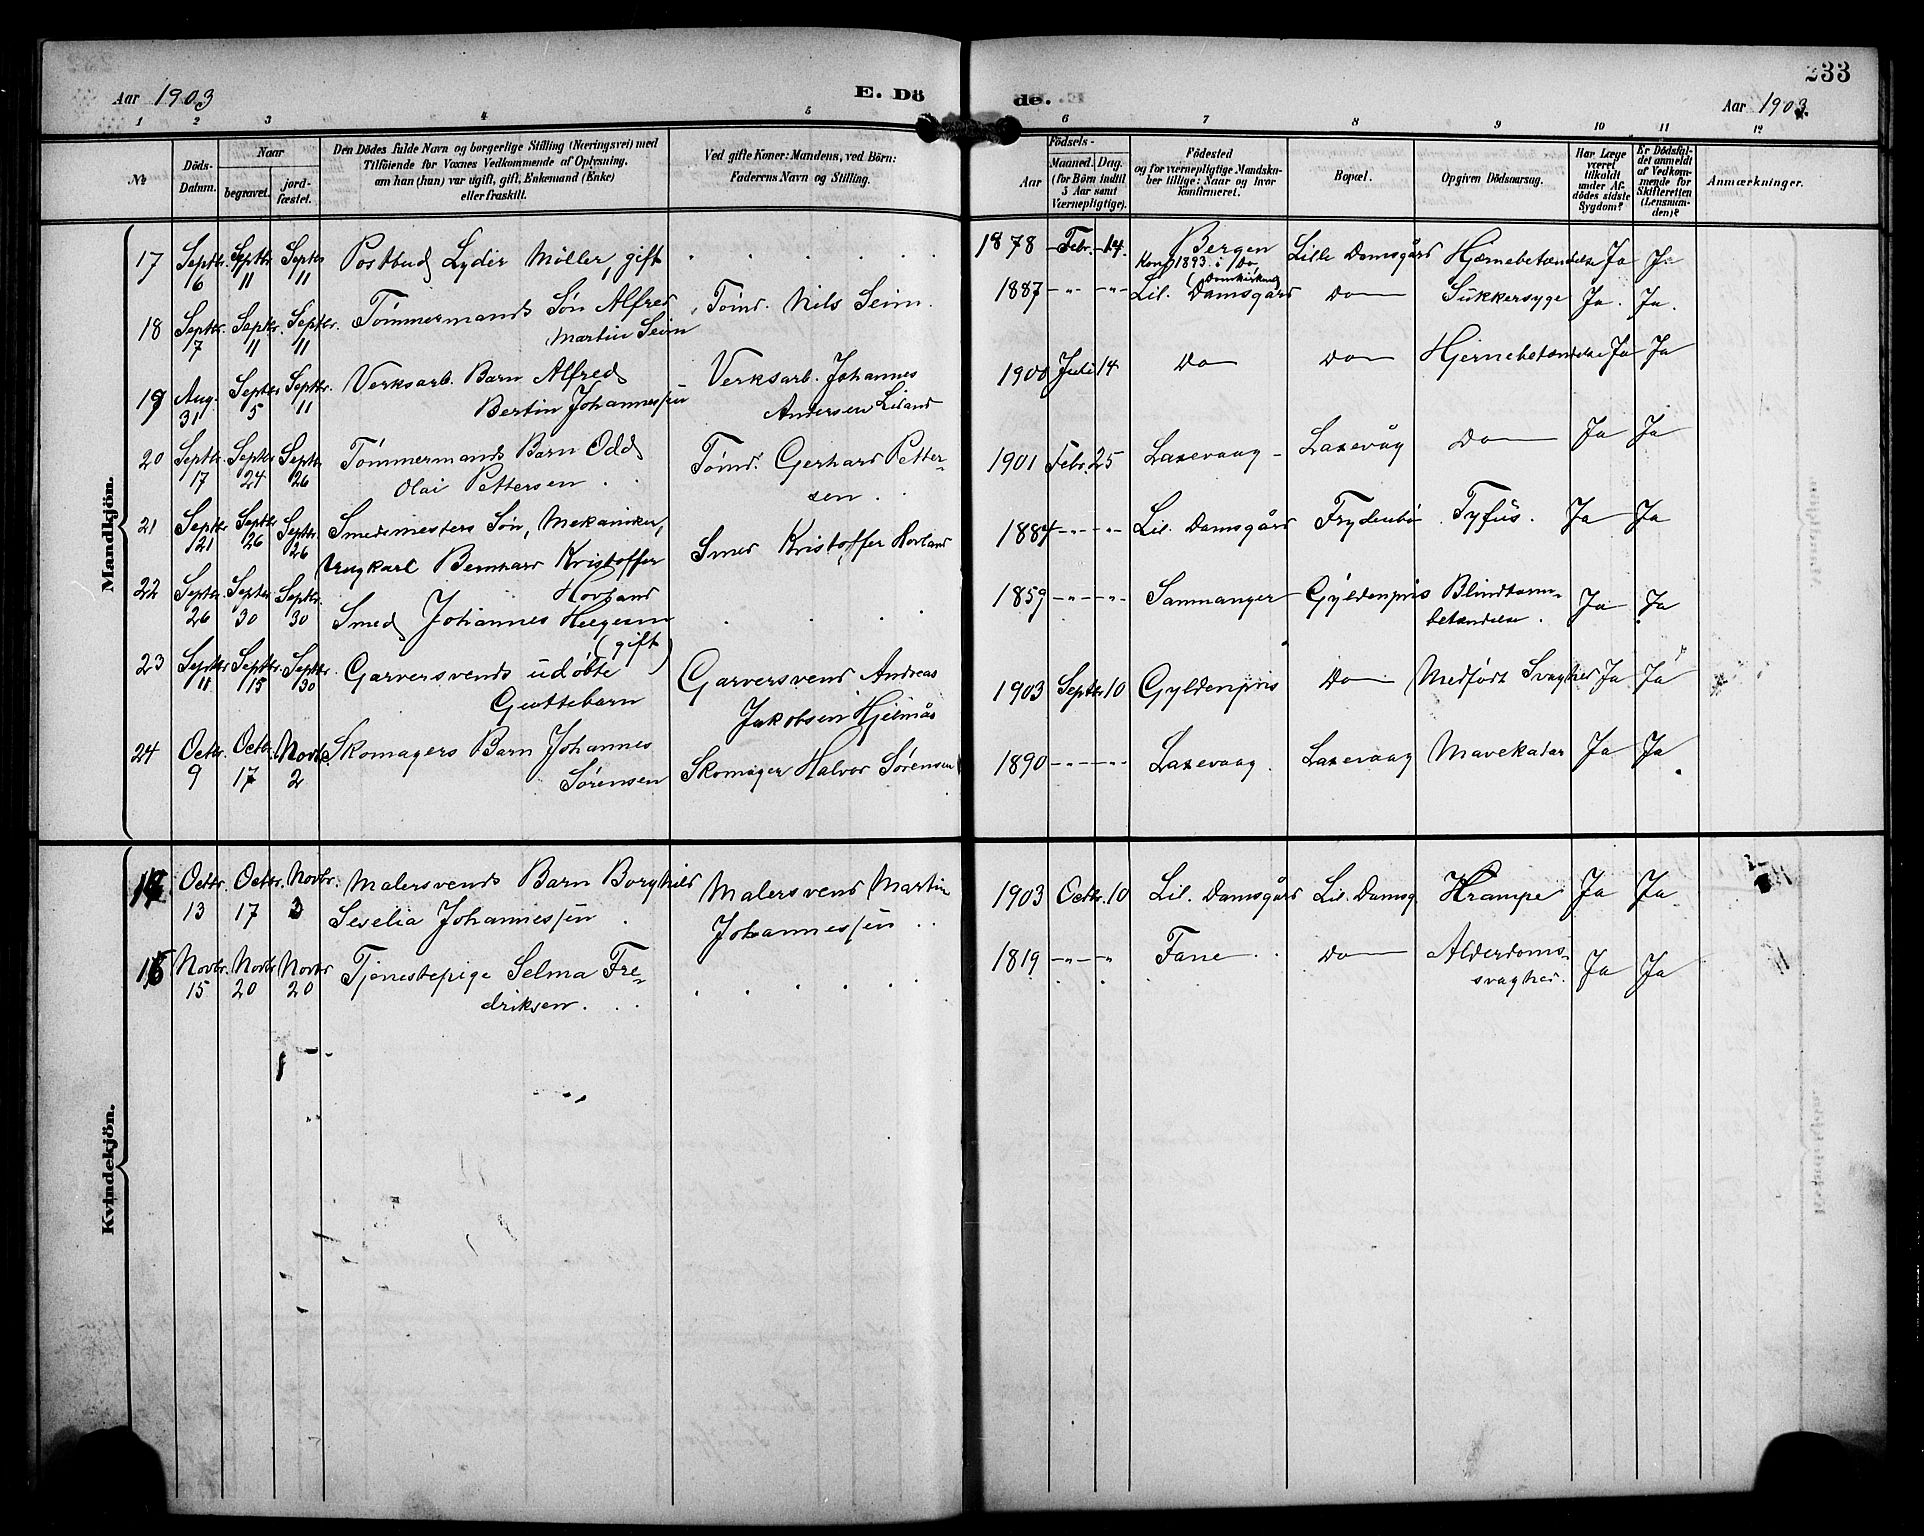 233
Aar 1903
E. Dö
de.
Aar 1903.
1 2 3 4 5 6 7 8 9 10 11 12
№
Döds-Datum.
Naar
begravet.
jord-fæstet.
Den Dödes fulde Navn og borgerlige Stilling (Næringsvei) med
Tilföiende for Voxnes Vedkommende af Oplysning,
om han (hun) var ugift, gift, Enkemand (Enke)
eller fraskilt.
Ved gifte Koner: Mandens, ved Börn:
Faderens Navn og Stilling.
Födsels-
Aar
Maaned. Dag.
(for Börn indtil
5 Aar samt
Værnepligtige).
Födested
og for værnepligtige Mandskaber tillige: Naar og hvor
konfirmeret.
Bopæl.
Opgiven Dödsaarsag.
Har Læge
været
tilkaldt
under Afdödes sidste
Sygdom?
Er Dödsfaldet anmeldt
af Vedkommende for
Skifteretten
(Lensmanden)?
Anmærkninger.
Mandkjön.
17 Septbr. 6 Septbr. 11 Septbr. 11 Postbud Lyder Möller, gift 1878 Febr. 14. Bergen Lille Damsgård Hjernebetændelse Ja Ja
Konf 1893 i Do
(Domkirken)
18 Septbr. 7 Septbr. 11 Septbr. 11 Tømmermands Søn Alfred Tømd. Nils Seim. 1887 -"- -"- Lil. Damsgård Do Sukkersyge Ja. Ja.
Martin Seim
19 Aug. 31 Septbr. 5 Septbr. 11 Verksarb. Barn Alfred Verksarb. Johannes 1900 Juli 14 Do Do Hjernebetændelse Ja Ja
Bertin Johannessen Andersen Liland
20 Septbr. 17 Septbr. 24 Septbr. 26 Tømmermands Barn Odd Tømd. Gerhard Petter- 1901 Febr. 25 Laxevaag Laxevåg Do Ja Ja
Olai Pettersen sen
21 Septbr. 21 Septbr. 26 Septbr. 26 Smedmesters Søn, Mekaniker, Smed Kristoffer Hovland 1884 -"- -"- Lil. Damsgård Frydenbø Tyfus. Ja Ja
Ungkarl Bernhard Kristoffer
Hovland
22 Septbr. 26 Septbr. 30 Septbr. 30 Smed Johannes Helgesen 1859 -"- -"- Samnanger Gyldenpris Blindtarm- Ja Ja
(gift) betændelse.
23 Septbr. 11 Septbr. 15 Septbr. 30 Garversvends udøbte Garversvend Andreas 1903 Septbr. 10 Gyldenpris Do Medfødt Svaghed Ja Ja
Guttebarn Jakobsen Hjelmås
24 Octbr. 9 Octbr. 17 Novbr. 2 Skomagers Barn Johannes Skomager Halvor Sørensen 1890 -"- -"- Laxevaag Laxevaag Mavekatar Ja Ja
Sørensen
Kvindekjön.
Octbr. 13 Octbr. 17 Novbr. Malersvends Barn Borghild Malersvend Martin 1903 Octbr. 10 Lil. Damsgård Lil. Damsg. Krampe Ja Ja
Seselia Johannessen Johannessen
Novbr. 15 Novbr. 20 Novbr. 20 Tjenestepige Selma Fre- 1819 -"- -"- Fane Do Alderdoms- Ja Ja
driksen svaghed.